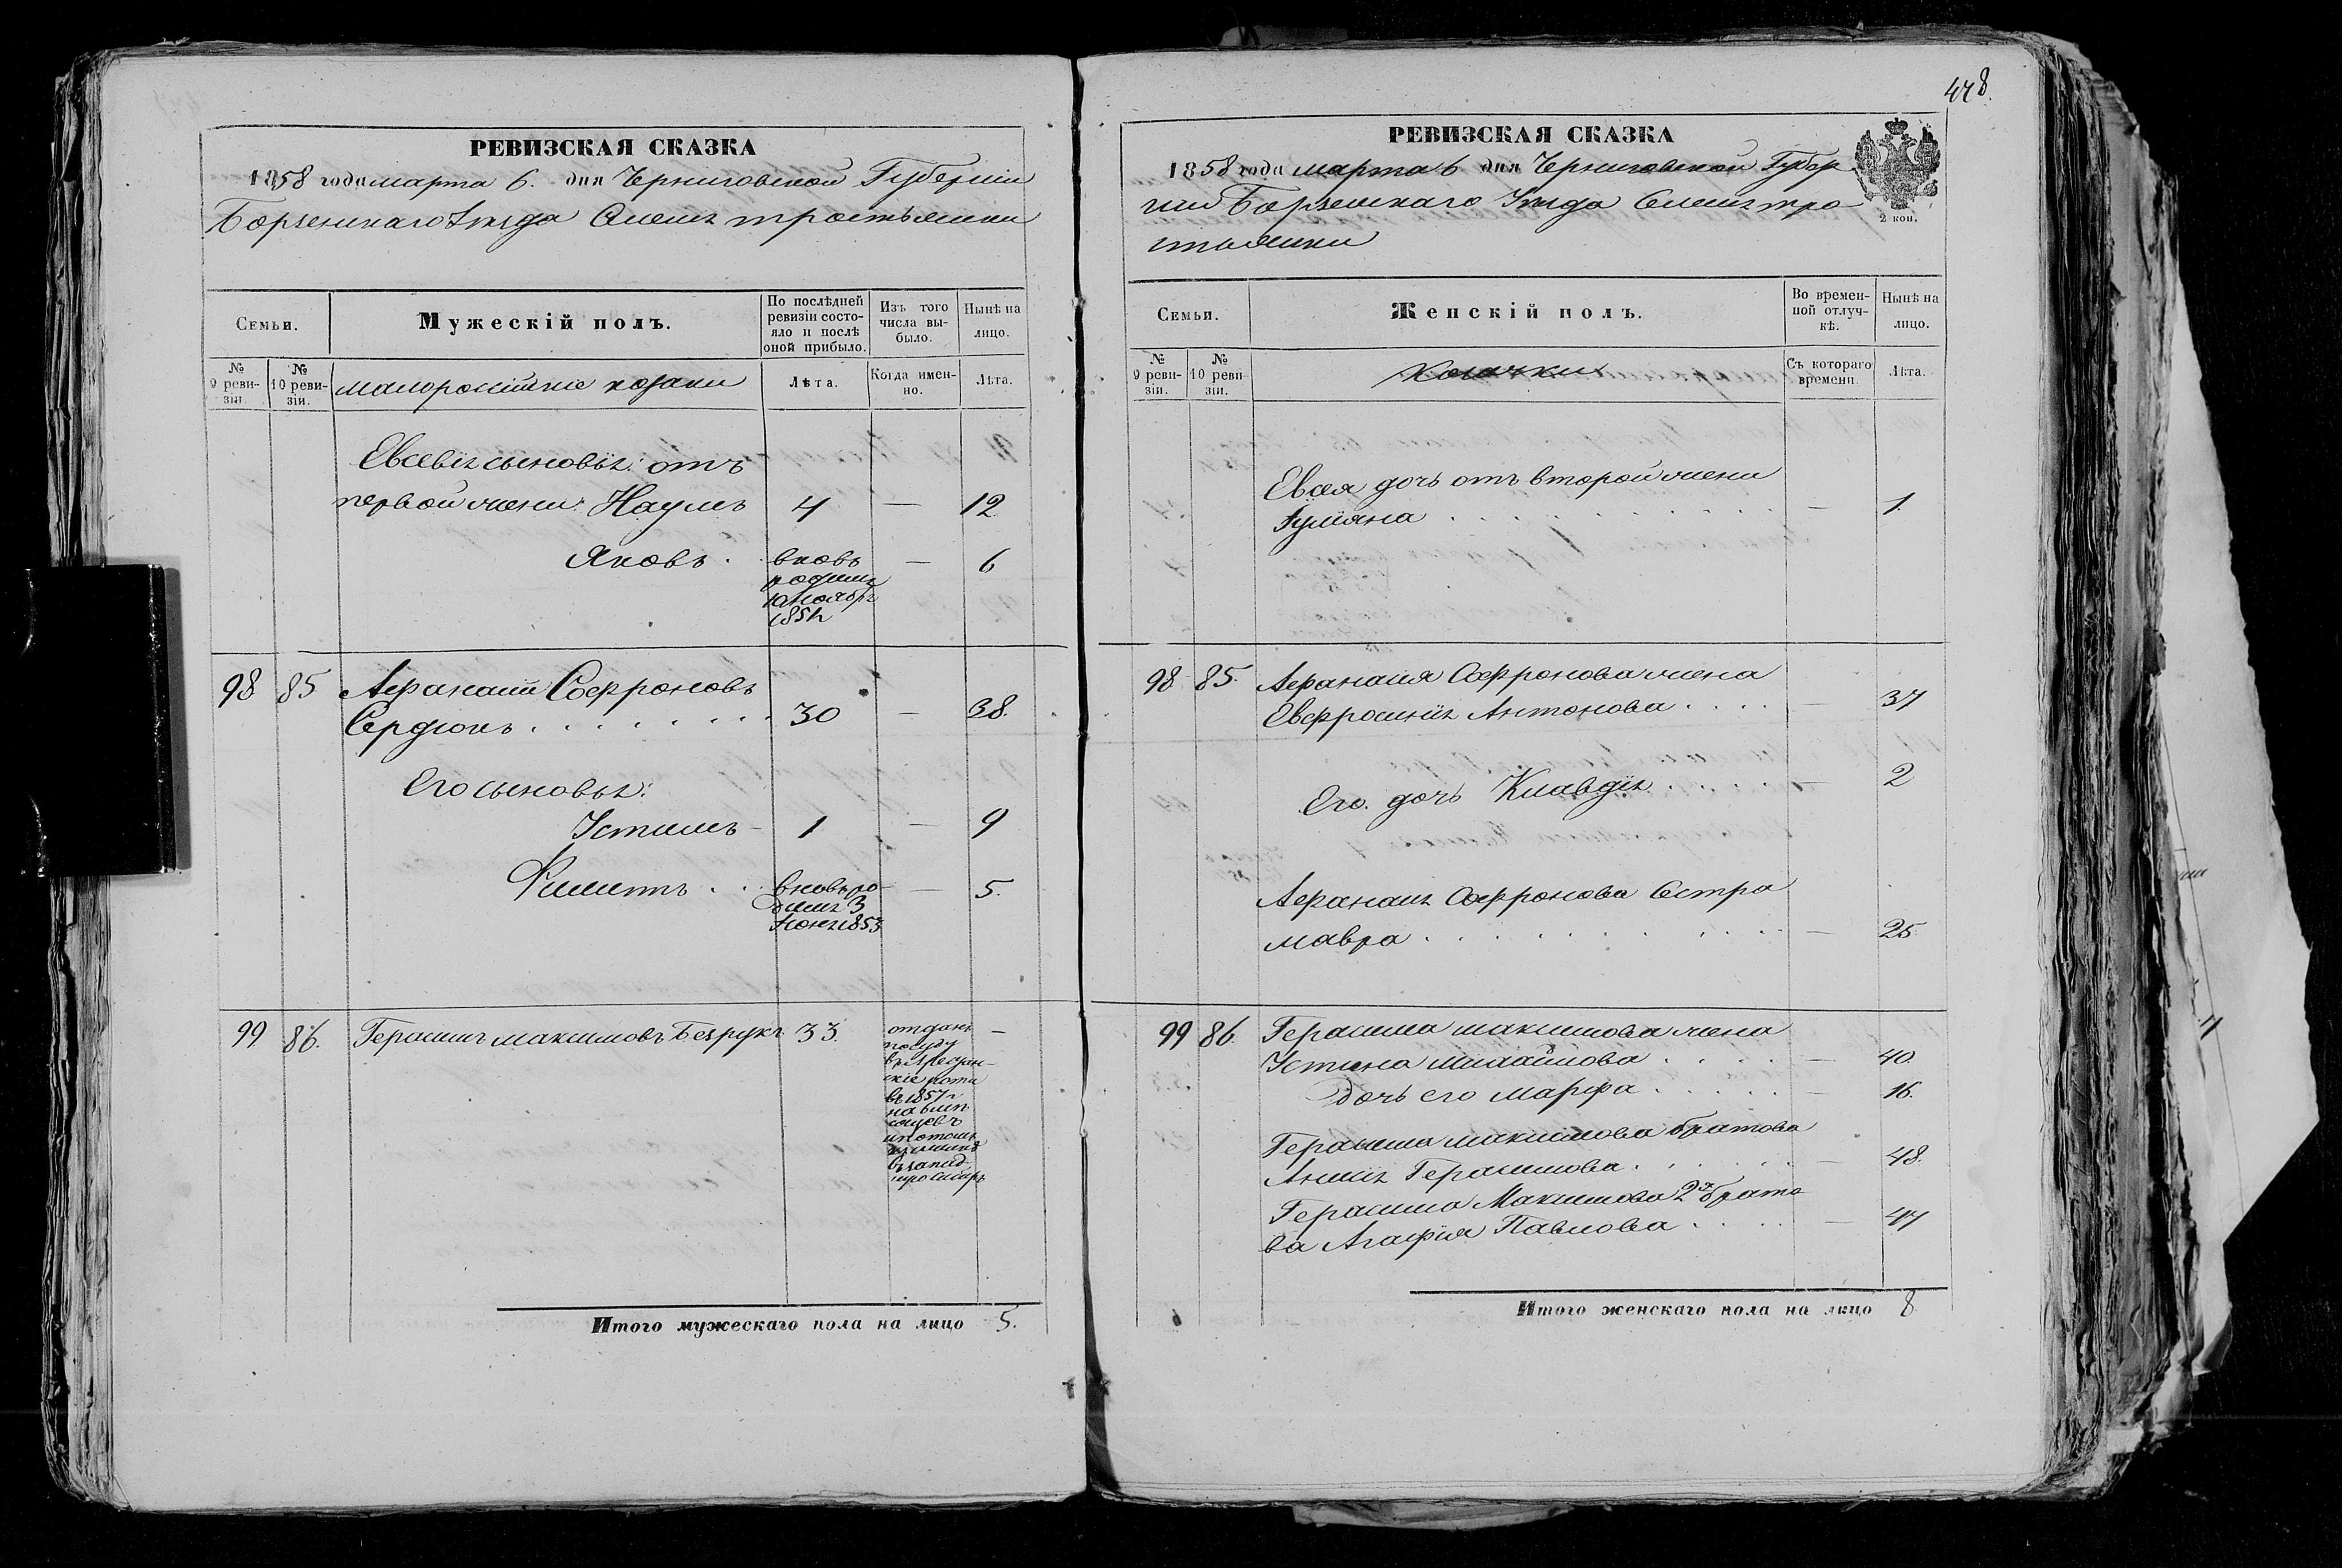 РЕВИЗСКАЯ СКАЗКА
1858 года марта 6. дня Черниговской Губерніи
Борзенскаго Уезда Села Тростянки
Семьи.
Мужескій полъ.
По послѣдней ревизіи состояло и послѣ оной прибыло.
Изъ того числа выбыло.
Нынѣ на лицо.
№ 9 ревизіи.
№ 10 ревизіи.
малоросійскіе козаки
Лѣта.
Когда именно.
Лѣта.
Евсевія сыновья: отъ
первой жены: Наумъ 4 — 12
Яковъ . . вновь — 6
1851
98 85 Афанасій Софроновъ
Сердюкъ . . . . . . . 30 — 38.
Его сыновья:
Устимъ - 1 — 9
Филипъ . . вновь ро- — 5.
дился 3
Іюня 1853
99 86. Герасимъ Максимовъ Безрукъ 33. отданъ —
по суду
въ Арестан-
скіе роты
въ 1857 г
Итого мужескаго пола на лицо 5.
448.
РЕВИЗСКАЯ СКАЗКА
1858 года марта 6 дня Черниговской Губер
ніи Борзенскаго Уезда Села Тро
стянки
2 коп.
Семьи.
Женскій полъ.
Во временной отлучкѣ.
Нынѣ на лицо.
№ 9 ревизіи.
№ 10 ревизіи.
Козачки
Съ котораго времени.
Лѣта.
Евсея дочь отъ второй жены
Іуліяна . . . . . . . . . . — 1.
98 85. Афанасія Софронова жена
Евфросинія Антонова . . . . — 37
Его. дочь Клавдія . . . . . — 2
Афанасія Софронова Сестра
Мавра . . . . . . . . . . — 25.
99 86. Герасима Максимова жена
Устина Михайлова . . . . — 40.
дочь его Марфа . . . . . — 16.
Герасима Максимова братова
Герасимова . . . . . — 48.
Герасима Максимова 2я брато
ва Агафия Павлова . . . . — 47
Итого женскаго пола на лицо 8